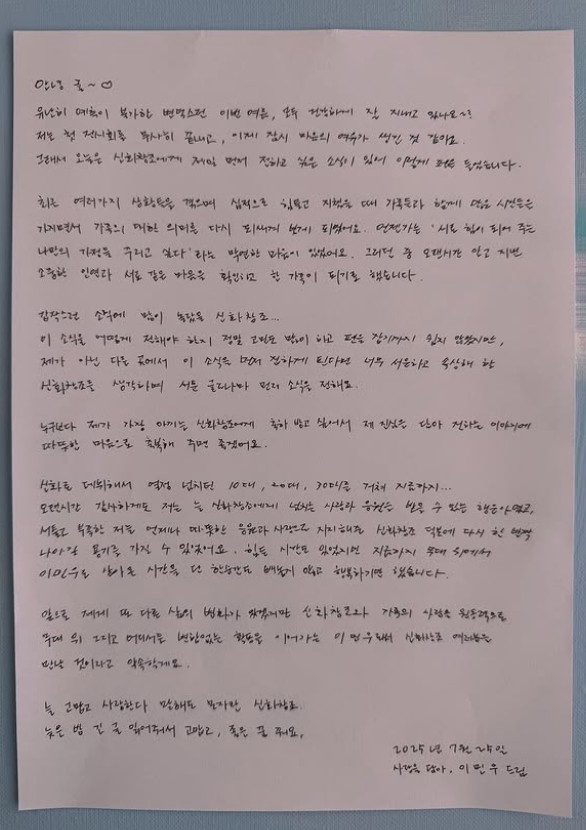 안녕 ~ ♡
유난히 예측이 불가한 변덕스런 이번 여름, 모두 건강하게 잘 지내고 있나요~?
저는 첫 전시회를 무사히 끝내고, 이제 잠시 마음의 여유가 생긴 것 같아요.
그래서 오늘은 신화창조에게 제일 먼저 전하고 싶은 소식이 있어 이렇게 펜을 들었습니다.
최근 여러가지 상황들을 겪으며 심적으로 힘들고 지쳤을 때 가족들과 함께 많은 시간들을
가지면서 가족의 대한 의미를 다시 되새기게 되었어요. 언젠가는 '서로 힘이 되어 주는
나만의 가정을 꾸리고 싶다'라는 막연한 마음이 있었어요. 그러던 중 오랜시간 알고 지낸
소중한 인연과 서로 같은 마음을 확인하고 한 가족이 되기로 했습니다.
갑작스런 소식에 많이 놀랐을 신화창조...
이 소식을 어떻게 전해야 하지 정말 고민도 많이 하고 펜을 잡기까지 쉽지 않았지만,
제가 아닌 다른 곳에서 이 소식을 먼저 전하게 된다면 너무 서운하고 속상해 할
신화창조를 생각하며 서툰 글로나마 먼저 소식을 전해요.
누구보다 제가 가장 아끼는 신화창조에게 축하 받고 싶어서 제 진심을 담아 전하는 이야기에
따뜻한 마음으로 축복해 주면 좋겠어요.
신화로 데뷔해서 열정 넘치던 10대, 20대, 30대를 거쳐 지금까지...
오랜시간 감사하게도 저는 늘 신화창조에게 넘치는 사랑과 응원을 받을 수 있는 행운아였고,
서툴고 부족한 저를 언제나 따뜻한 응원과 사랑으로 지지해준 신화창조 덕분에 다시 한 번
나아갈 용기를 가질 수 있었어요. 힘든 시간도 있었지만 지금까지 무대 위에서
이민우로 살아온 시간을 단 한순간도 빼놓지 않고 행복하기만 했습니다.
앞으로 제게 또 다른 삶의 변화가 있겠지만 신화창조와 가족의 사랑을 원동력으로
무대 위 그리고 어디서든 변함없는 활동을 이어가는 이민우로 신화창조 여러분을
만날 것이라고 약속할게요.
늘 고맙고 사랑한다 말해도 모자란 신화창조.
늦은 밤 긴 글 읽어줘서 고맙고, 좋은 꿈 꿔요.
2025년 7월 25일
사랑을 담아. 이민우 드림